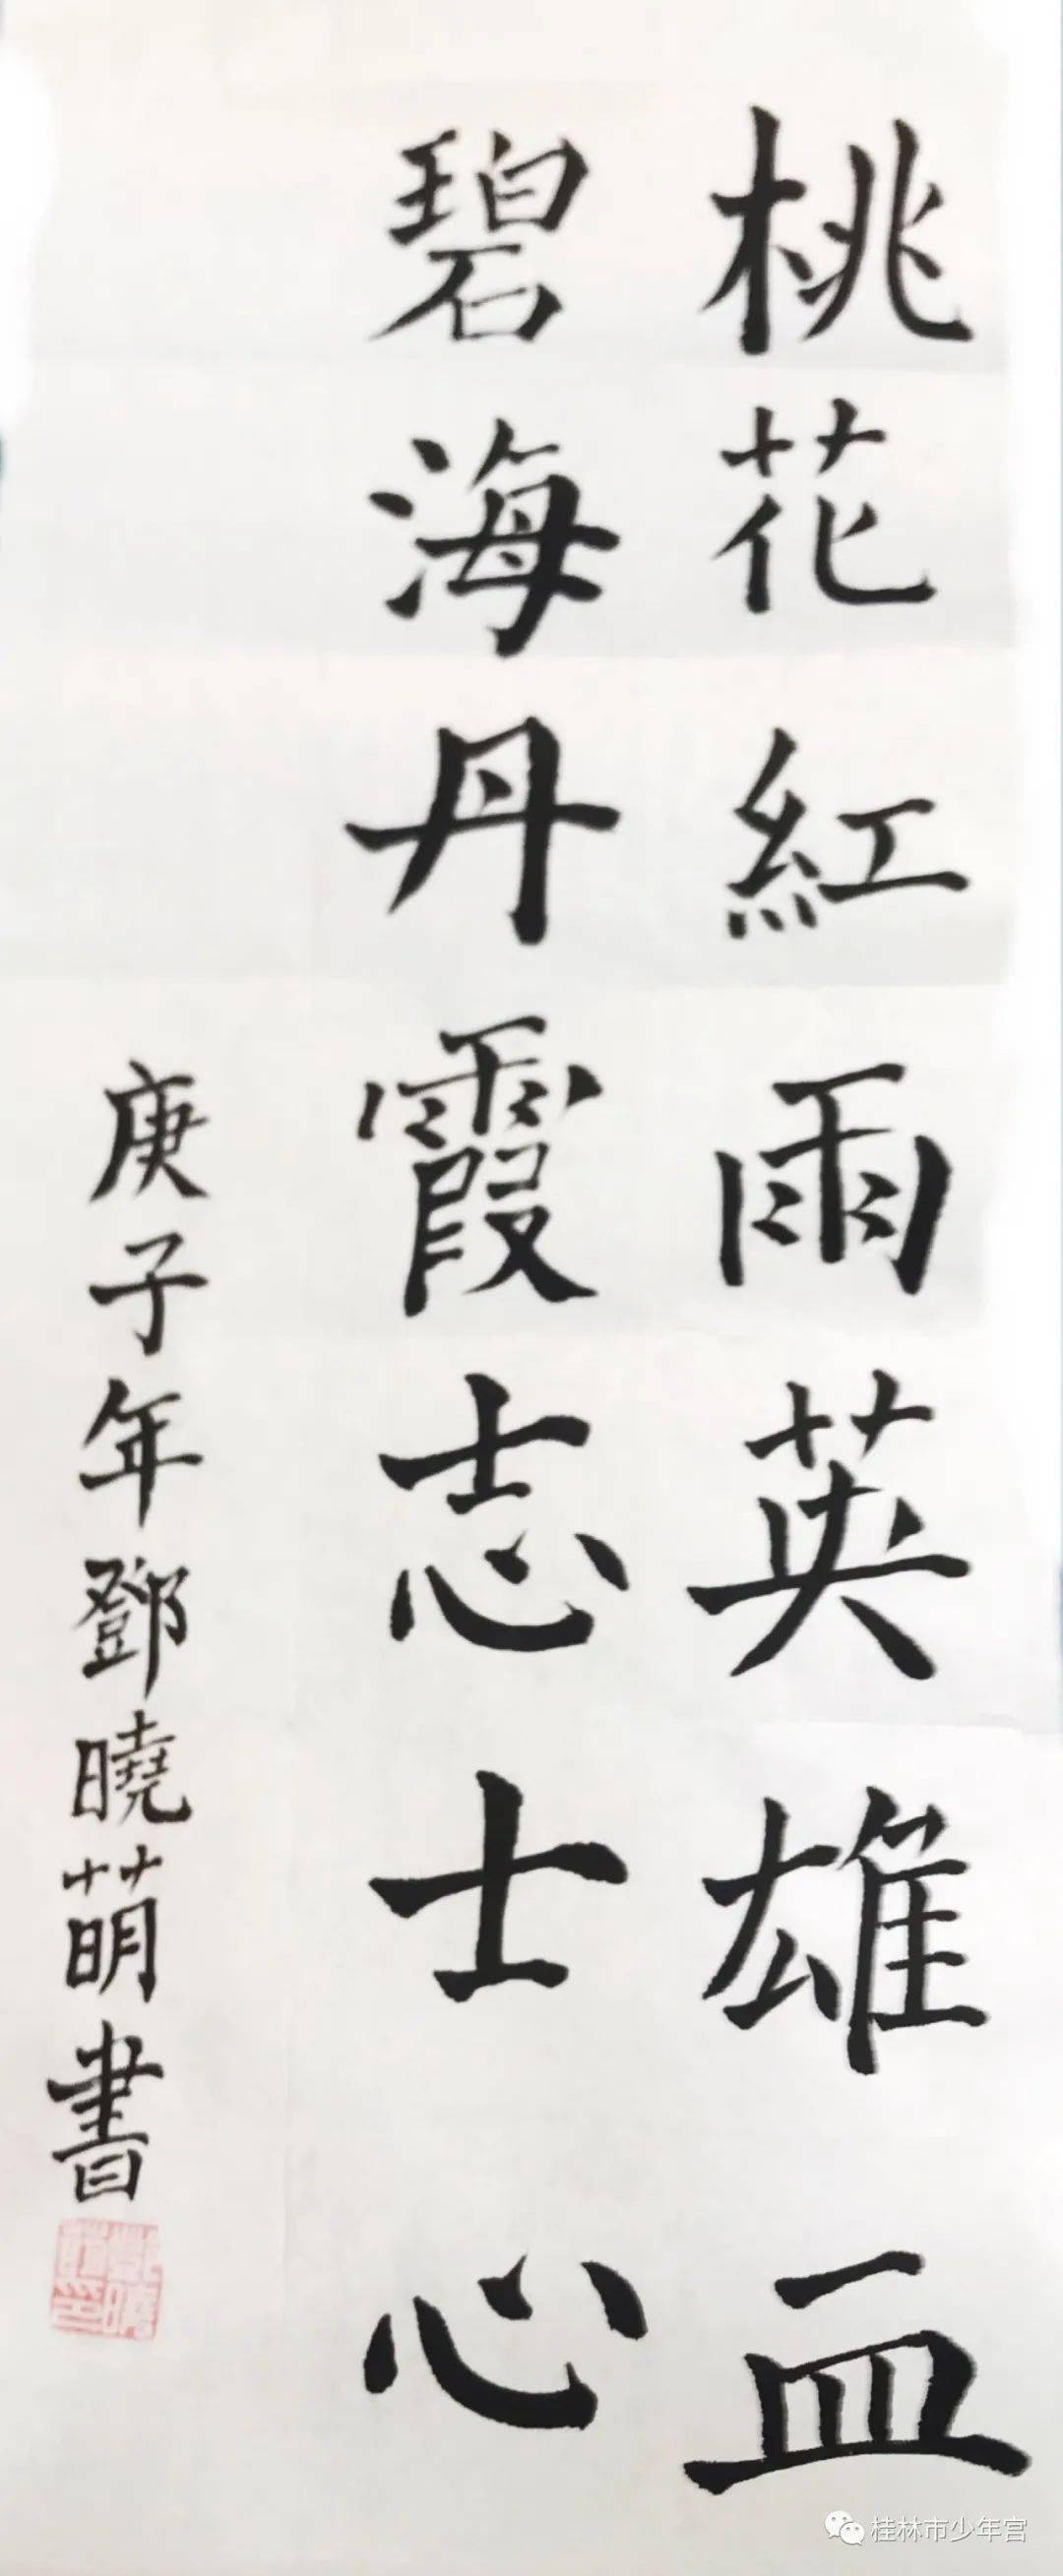 桃花紅雨英雄血
碧海丹霞志士心
庚子年鄧曉萌書
桂林市少年宫